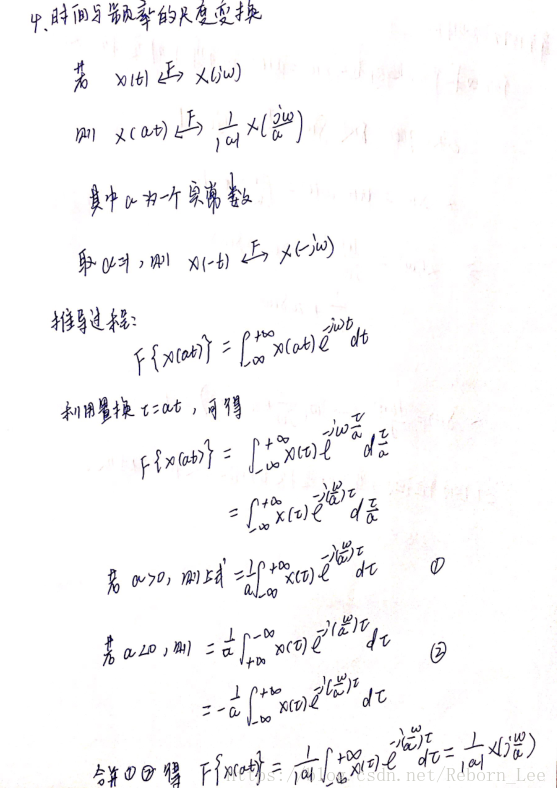 4、时间与频率的尺度变换
若 x(t) ←F→ X(jω)
则 x(at) ←F→ 1/|a| X(jω/a)
其中a为一个实常数
取a=-1,则 x(-t) ←F→ X(-jω)
推导过程:
F{x(at)} = ∫_{-∞}^{+∞} x(at) e^{-jωt} dt
利用置换 τ=at,可得
F{x(at)} = ∫_{-∞}^{+∞} x(τ) e^{-jω τ/a} d τ/a
= ∫_{-∞}^{+∞} x(τ) e^{-j(ω/a)τ} d τ/a
若 a>0,则上式 = 1/a ∫_{-∞}^{+∞} x(τ) e^{-j(ω/a)τ} dτ ①
若 a<0,则 = 1/a ∫_{+∞}^{-∞} x(τ) e^{-j(ω/a)τ} dτ ②
= -1/a ∫_{-∞}^{+∞} x(τ) e^{-j(ω/a)τ} dτ
合并①②得 F{x(at)} = 1/|a| ∫_{-∞}^{+∞} x(τ) e^{-j(ω/a)τ} dτ = 1/|a| X(jω/a)
https://blog.csdn.net/Reborn_Lee